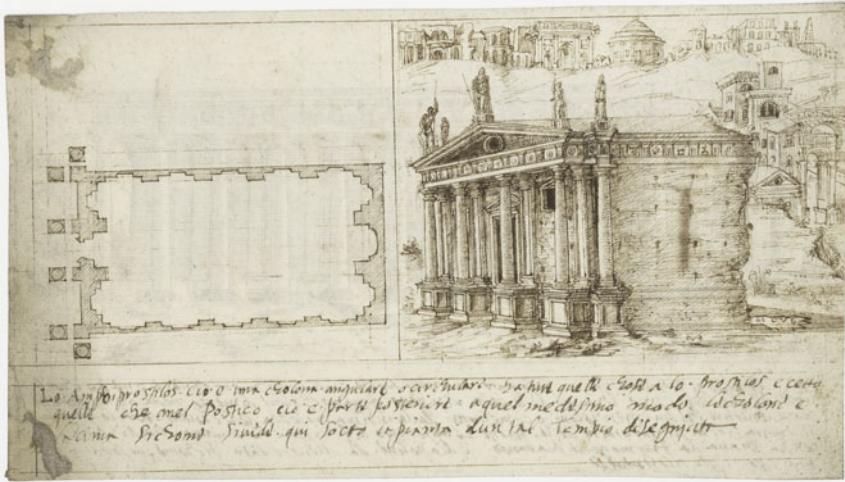 Lo Amfoiprostilos cio e una cholona angulare o circhulare ha tute quelle chose a lo prostilos e cceto
quelle che nel postico cio e parte posteriore a quel medesimo modo le cholone e
sichome si vede qui socto la pianta dun tal tempio disegniato